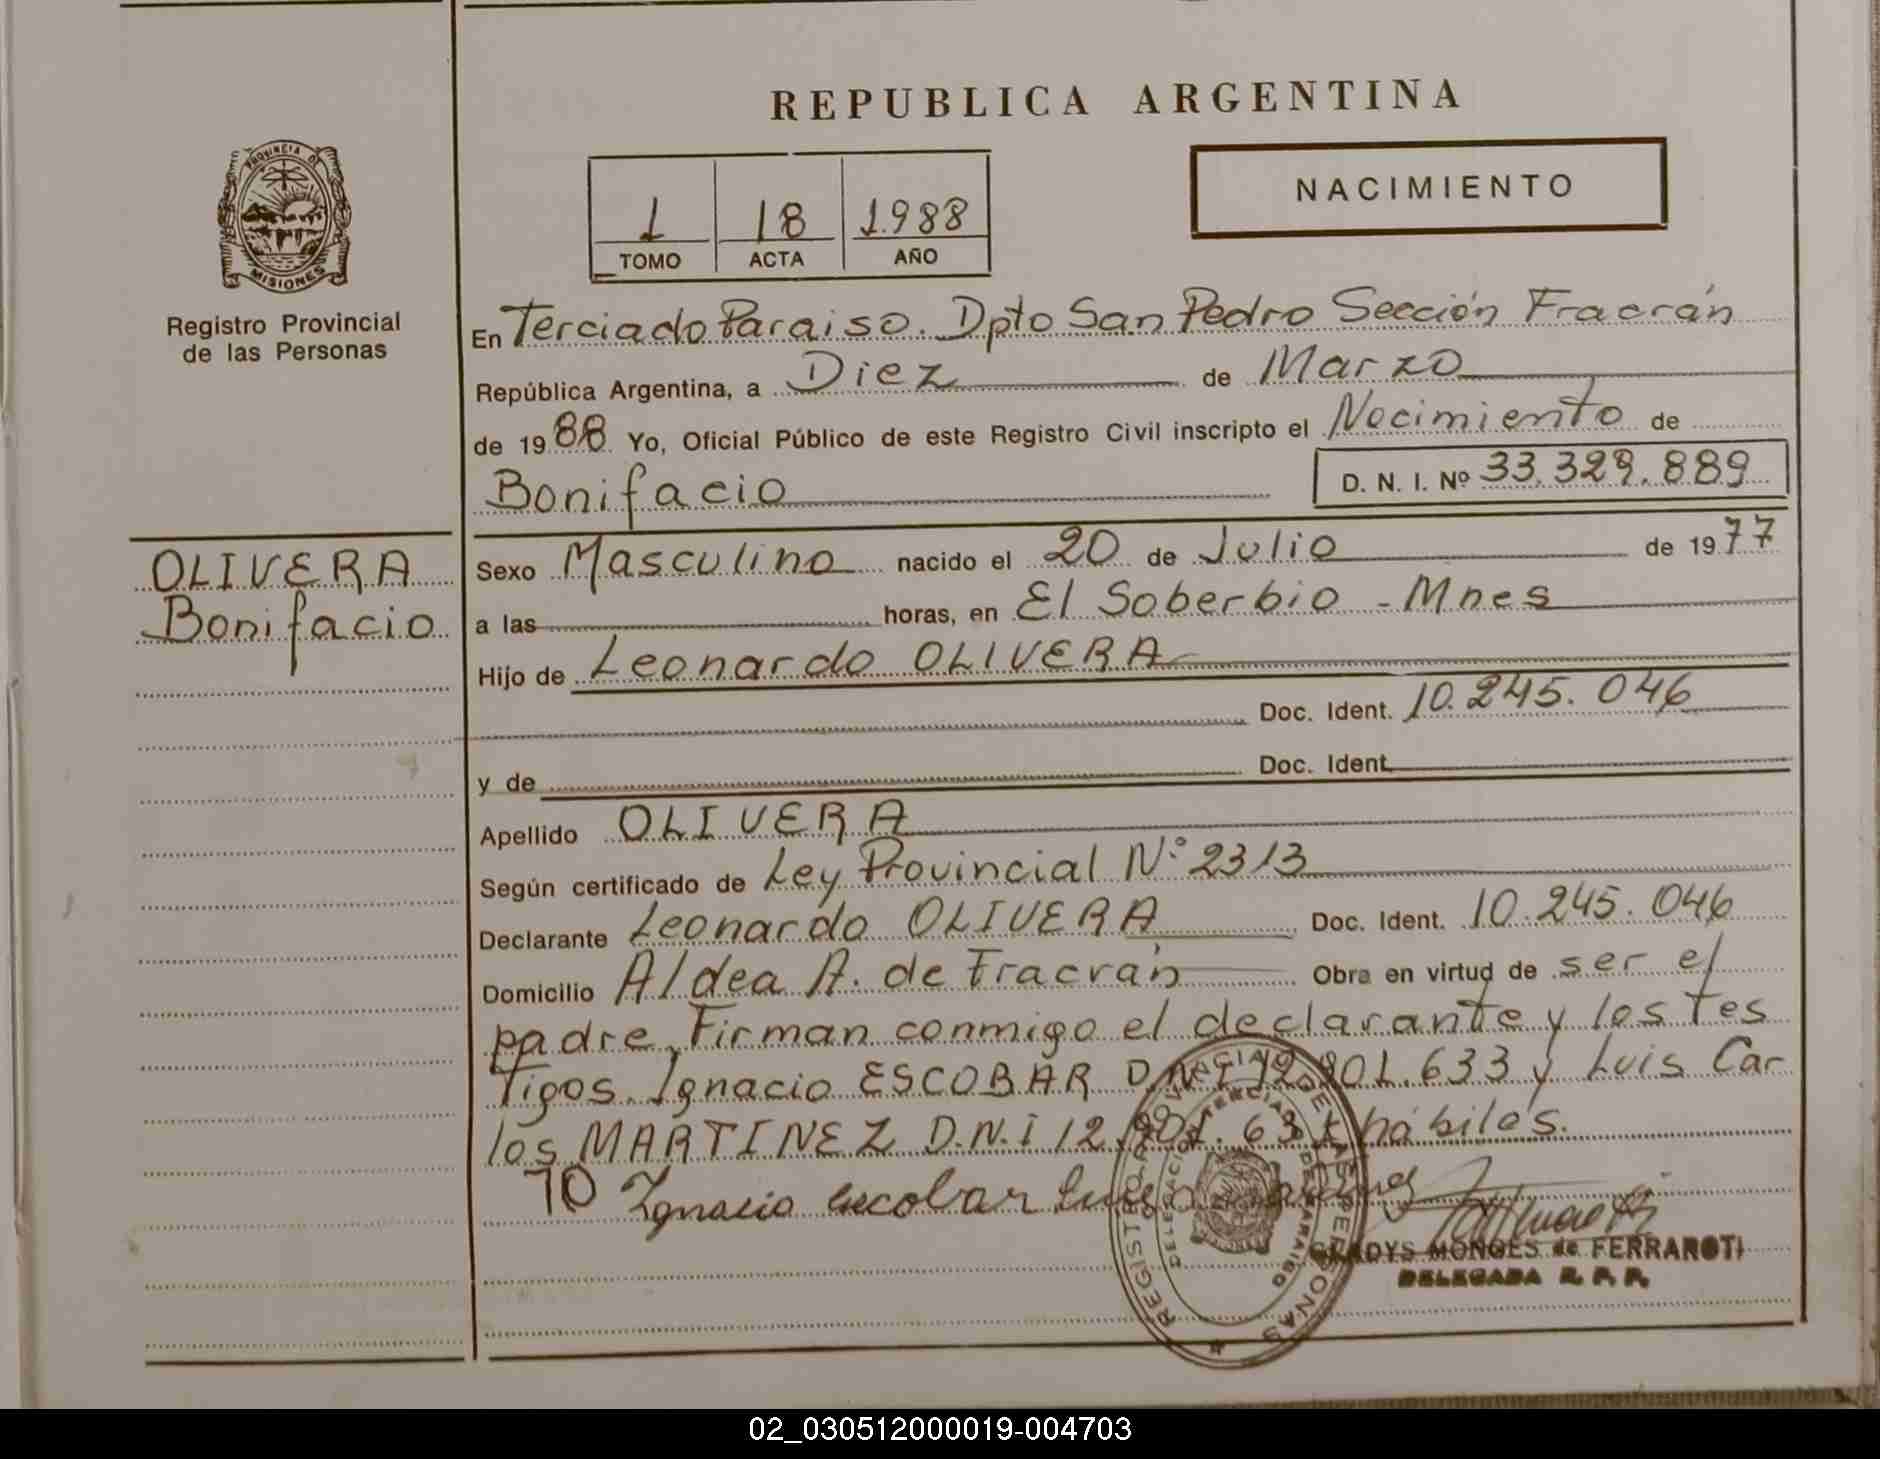 REPUBLICA ARGENTINA
PROVINCIA DE
MISIONES
Registro Provincial
de las Personas
NACIMIENTO
1 18 1.988
TOMO ACTA AÑO
En Terciado Paraiso. Dpto San Pedro Sección Fracrán
República Argentina, a Diez de Marzo
de 1988 Yo, Oficial Público de este Registro Civil inscripto el Nacimiento de
Bonifacio D. N. I. Nº 33.329.889
OLIVERA
Bonifacio
Sexo Masculino nacido el 20 de Julio de 1977
a las horas, en El Soberbio - Mnes
Hijo de Leonardo OLIVERA
Doc. Ident. 10.245.046
y de Doc. Ident.
Apellido OLIVERA
Según certificado de Ley Provincial Nº 2313
Declarante Leonardo OLIVERA Doc. Ident. 10.245.046
Domicilio Aldea A. de Fracrán Obra en virtud de ser el
padre. Firman conmigo el declarante y los Tes
Tigos. Ignacio ESCOBAR D.N.I 12.901.633 y Luis Car
los MARTINEZ D.N.I 12. hábiles.
Ignacio escobar
GLADYS MONGES de FERRAROTI
DELEGADA R. P. P.
02_030512000019-004703